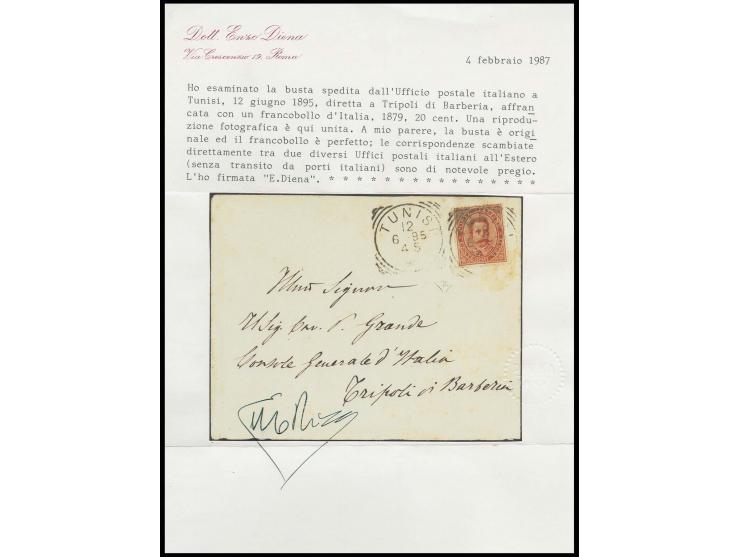 Dott. Enzo Diena
Via Crescenzio 19, Roma
4 febbraio 1987
Ho esaminato la busta spedita dall'Ufficio postale italiano a
Tunisi, 12 giugno 1895, diretta a Tripoli di Barberia, affran
cata con un francobollo d'Italia, 1879, 20 cent. Una riprodu-
zione fotografica è qui unita. A mio parere, la busta è origi
nale ed il francobollo è perfetto; le corrispondenze scambiate
direttamente tra due diversi Uffici postali italiani all'Estero
(senza transito da porti italiani) sono di notevole pregio.
L'ho firmata "E.Diena". * * * * * * * * * * * * * * * * *
TUNISI
12
6 95
4 S
Illmo Signor
Il Sig. Cav. P. Grande
Console Generale d'Italia
Tripoli di Barberia